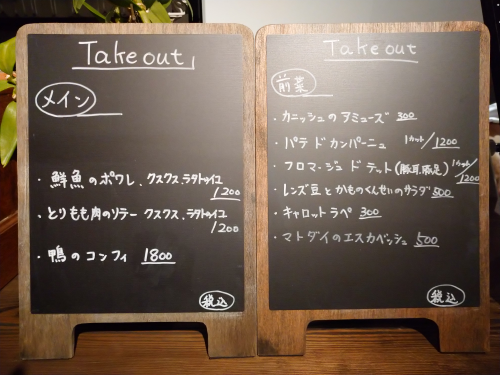 Take out
メイン
・鮮魚のポワレ、クスクス、ラタトゥイユ
1200
・とりもも肉のソテー クスクス、ラタトゥイユ
1200
・鴨のコンフィ 1800
税込
Take out
前菜
・カニッシュのアミューズ 300
・パテ ド カンパーニュ 1カット/1200
・フロマージュ ド テット(豚耳、豚足) 1カット/1200
・レンズ豆とかものくんせいのサラダ 500
・キャロットラペ 300
・マトダイのエスカベッシュ 500
税込